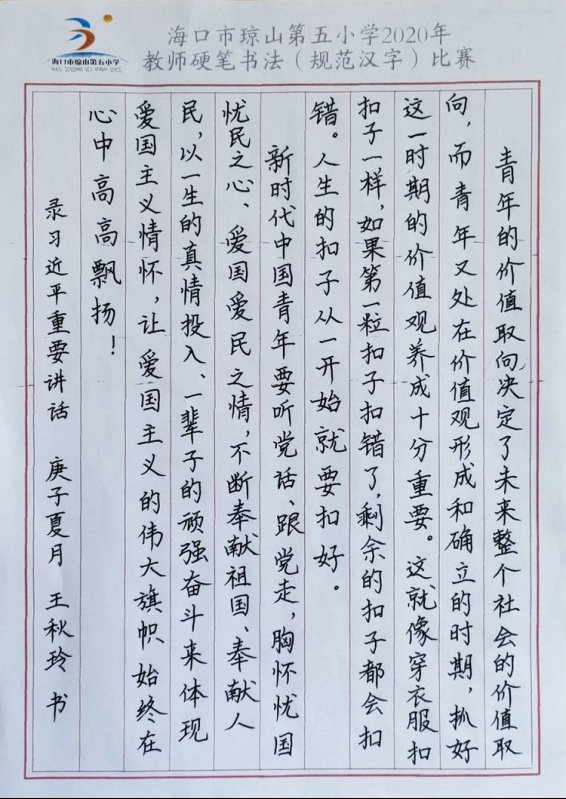 海口市琼山第五小学
海口市琼山第五小学2020年
教师硬笔书法（规范汉字）比赛
青年的价值取向决定了未来整个社会的价值取
向，而青年又处在价值观形成和确立的时期，抓好
这一时期的价值观养成十分重要。这就像穿衣服扣
扣子一样，如果第一粒扣子扣错了，剩余的扣子都会扣
错。人生的扣子从一开始就要扣好。
新时代中国青年要听党话、跟党走，胸怀忧国
忧民之心、爱国爱民之情，不断奉献祖国、奉献人
民，以一生的真情投入、一辈子的顽强奋斗来体现
爱国主义情怀，让爱国主义的伟大旗帜始终在
心中高高飘扬！
录习近平重要讲话 庚子夏月 王秋玲 书